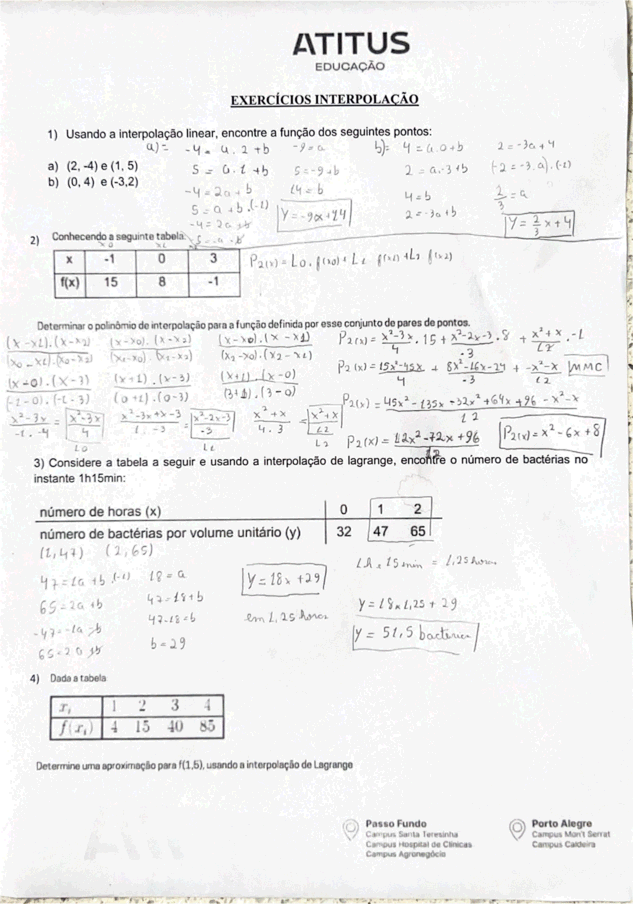 ATITUS
EDUCAÇÃO
EXERCÍCIOS INTERPOLAÇÃO
1) Usando a interpolação linear, encontre a função dos seguintes pontos:
a) (2, -4) e (1, 5)
b) (0, 4) e (-3,2)
a)= -4 = a.2+b
5 = a.1+b
-4 = 2a+b
5 = a+b.(-1)
-4 = 2a+b
-5 = -a-b
-9 = a
5 = -9+b
14 = b
Y = -9x+14
b)= 4 = a.0+b
2 = a.-3+b
4 = b
2 = -3a+b
2 = -3a+4
(-2 = -3.a).(-1)
2/3 = a
Y = 2/3 x + 4
2) Conhecendo a seguinte tabela:
x0 x1
x -1 0 3
f(x) 15 8 -1
P2(x) = L0.f(x0)+L1 f(x1)+L2 f(x2)
Determinar o polinômio de interpolação para a função definida por esse conjunto de pares de pontos.
(x-x1).(x-x2)/(x0-x1).(x0-x2) (x-x0).(x-x2)/(x1-x0).(x1-x2) (x-x0).(x-x1)/(x2-x0).(x2-x1)
(x-0).(x-3)/(-1-0).(-1-3) (x+1).(x-3)/(0+1).(0-3) (x+1).(x-0)/(3+1).(3-0)
x²-3x/-1.-4 = x²-3x/4 L0 x²-3x+x-3/1.-3 = x²-2x-3/-3 L1 x²+x/4.3 = x²+x/12 L2
P2(x) = x²-3x/4 . 15 + x²-2x-3/-3 . 8 + x²+x/12 . -1
P2(x) = 15x²-45x/4 + 8x²-16x-24/-3 + -x²-x/12 MMC
P2(x) = 45x²-135x-32x²+64x+96-x²-x/12
P2(x) = 12x²-72x+96/12 P2(x) = x²-6x+8
3) Considere a tabela a seguir e usando a interpolação de lagrange, encontre o número de bactérias no
instante 1h15min:
número de horas (x) 0 1 2
número de bactérias por volume unitário (y) 32 47 65
(1,47) (2,65)
47 = 1a+b.(-1)
65 = 2a+b
-47 = -1a-b
65 = 2a+b
18 = a
47 = 18+b
47-18 = b
b = 29
Y = 18x+29
em 1,25 horas
1h e 15min = 1,25 horas
Y = 18x1,25+29
Y = 51,5 bactérias
4) Dada a tabela
xᵢ 1 2 3 4
f(xᵢ) 4 15 40 85
Determine uma aproximação para f(1,5), usando a interpolação de Lagrange
Passo Fundo
Campus Santa Teresinha
Campus Hospital de Clínicas
Campus Agronegócio
Porto Alegre
Campus Mon't Serrat
Campus Caldeira